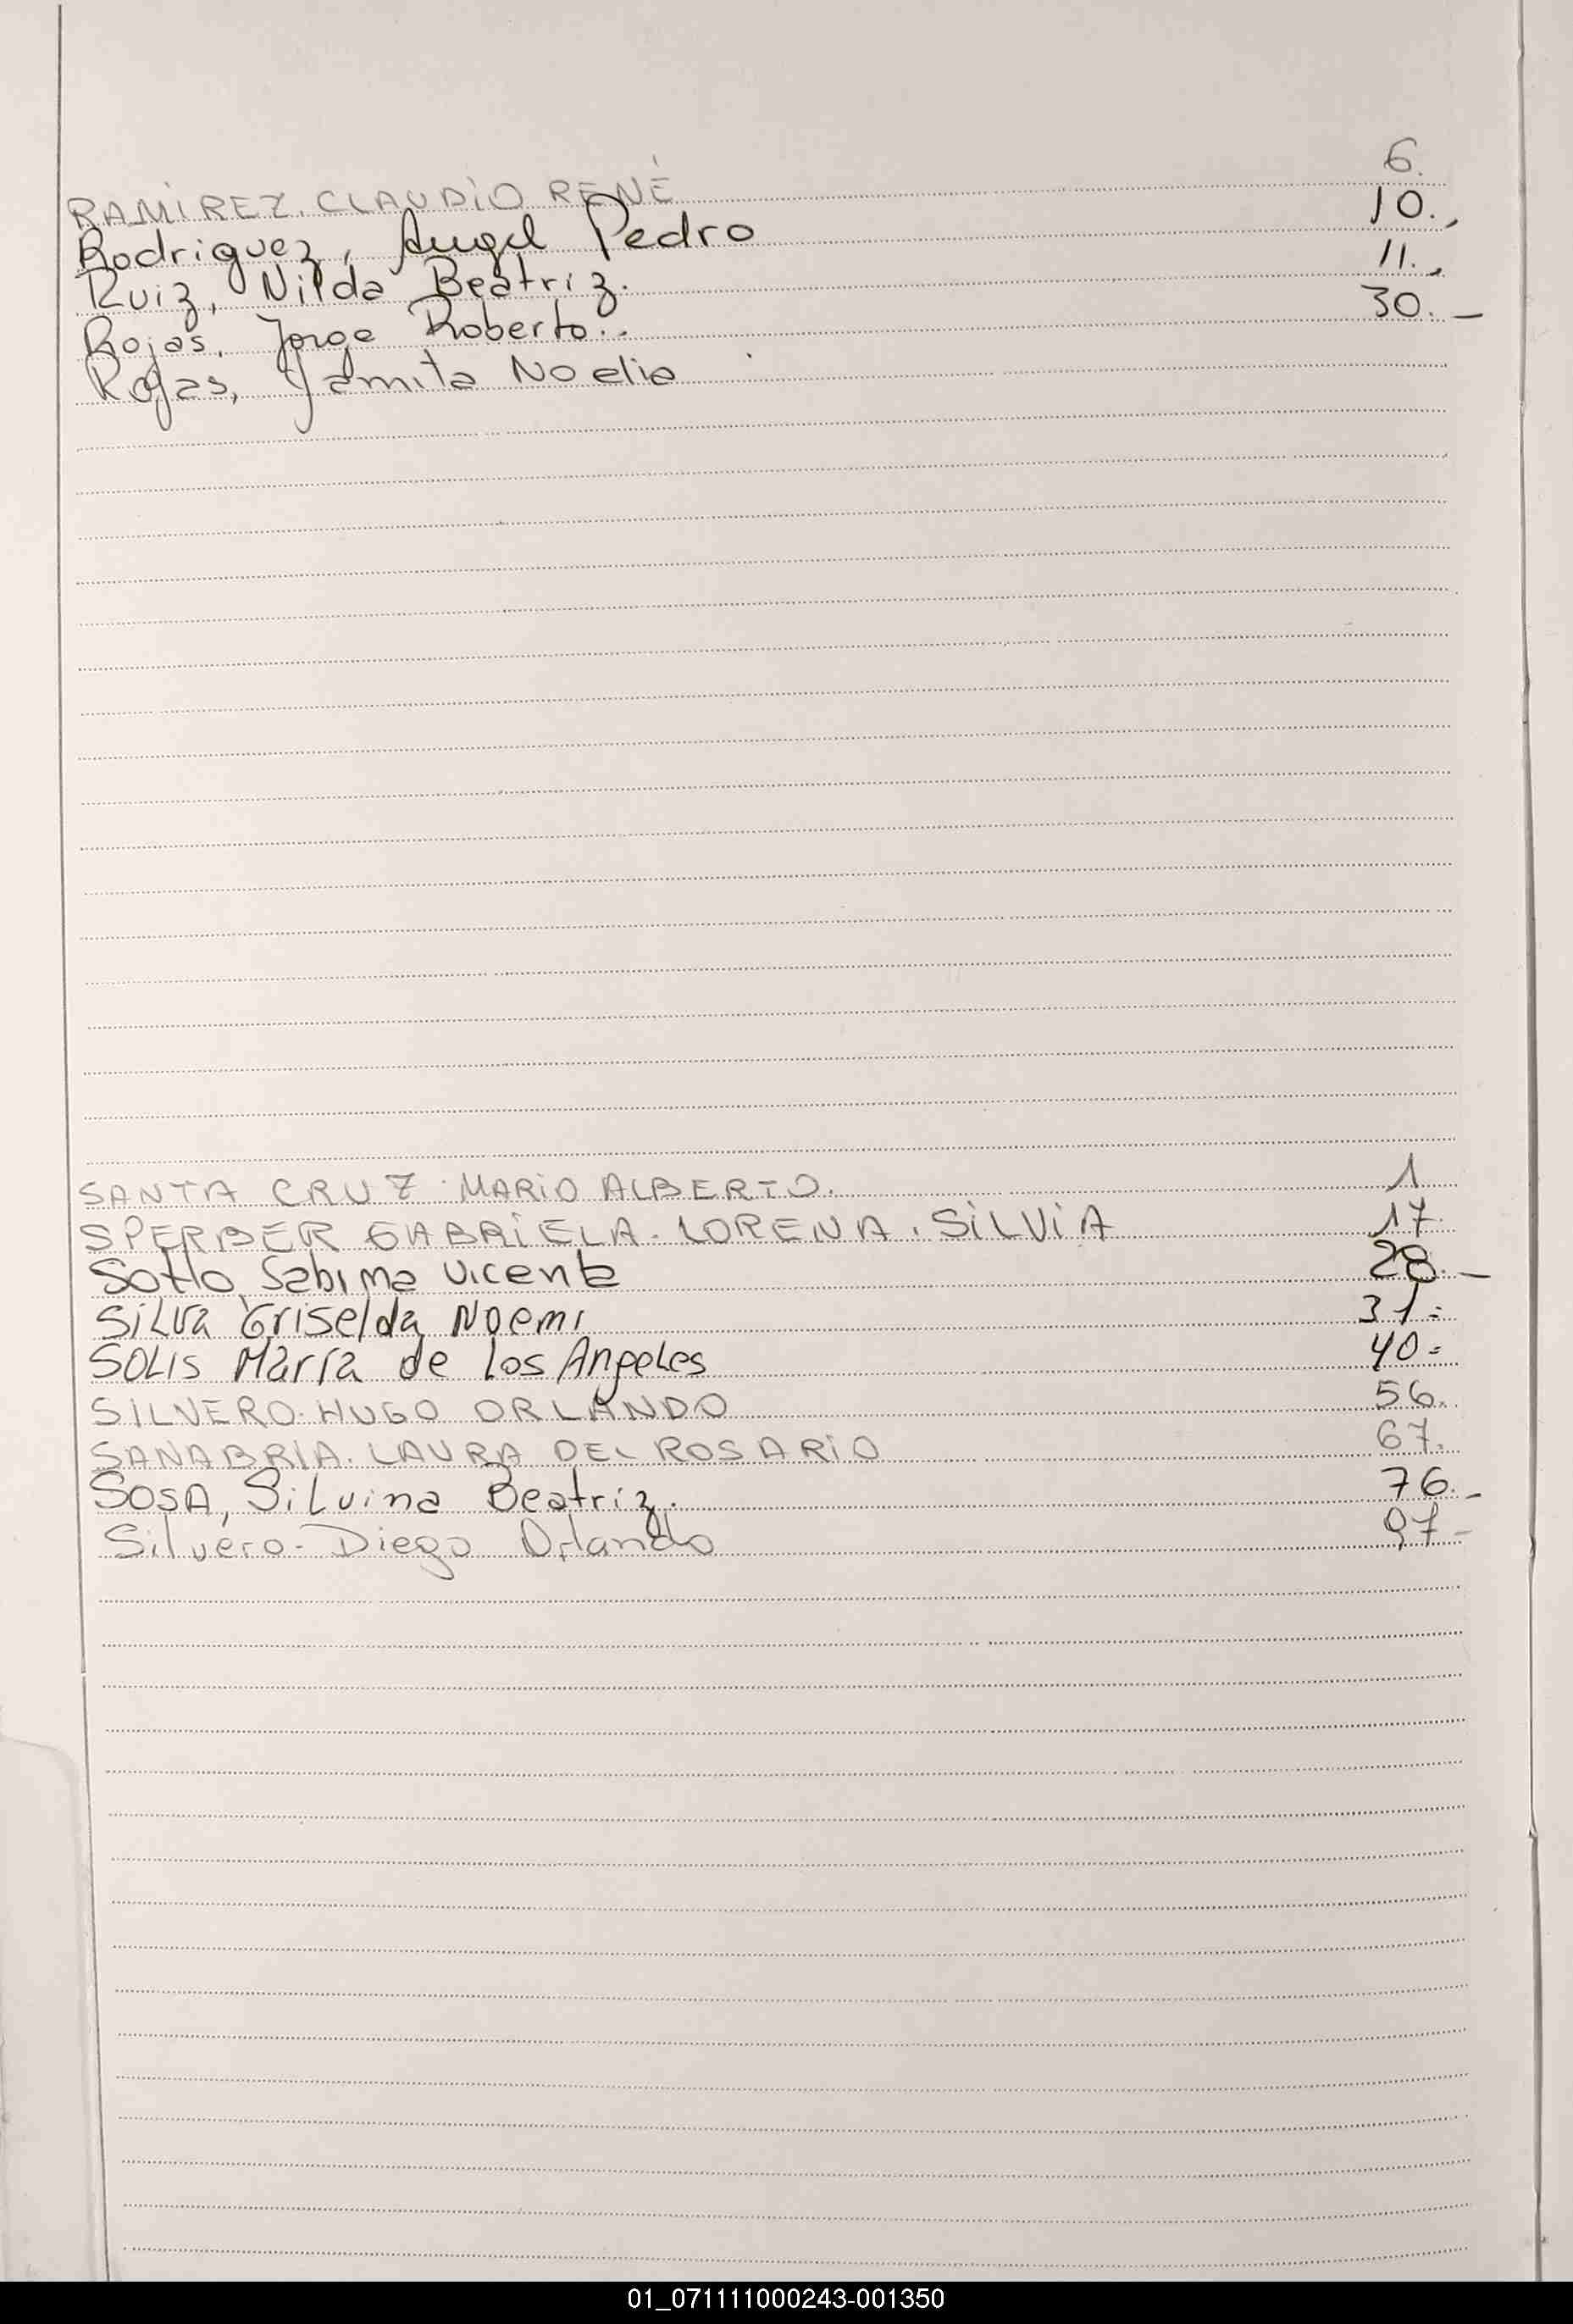 RAMIREZ. CLAUDIO RENÉ 6.
Rodriguez, Angel Pedro 10.,
Ruiz, Nilda Beatriz. 11.,
Rojas, Jorge Roberto.. 30.-
Rojas, Yamila Noelia
SANTA CRUZ MARIO ALBERTO. 1
SPERBER GABRIELA. LORENA. SILVIA 17.
Sotto, Sabima Vicente 28.-
Silva Griselda Noemi 31=
SOLIS María de los Angeles 40=
SILVERO. HUGO ORLANDO 56.
SANABRIA. LAURA DEL ROSARIO 67.
SOSA, Silvina Beatriz. 76.-
Silvero- Diego Orlando 97-
01_071111000243-001350